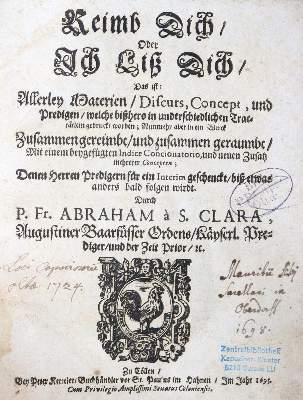 Reimb Dich/
Oder
Ich Liß Dich/
Das ist:
Allerley Materien/ Discurs, Concept, und
Predigen/ welche bißhero in underschiedlichen Trac-
tätlen gedruckt worden; Nunmehr aber in ein Werck
Zusammen gereimbt/ und zusammen geraumbt/
Mit einem beygefügten Indice Concionatorio, und neuen Zusatz
mehrerer Concepten;
Denen Herren Predigern für ein Interim geschenckt/ biß etwas
anders bald folgen wirdt.
Durch
P. Fr. ABRAHAM à S. CLARA,
Augustiner Baarfüsser Ordens/ Käyserl. Pre-
diger/ und der Zeit Prior/ ꝛc.
Loci Capucinorum
1724.
Zu Cöllen/
Bey Peter Ketteler Buchhändler vor St. Paulus im Hahnen/ Im Jahr
Cum Privilegio Amplissimi Senatus Coloniensis.
Zentralbibliothek